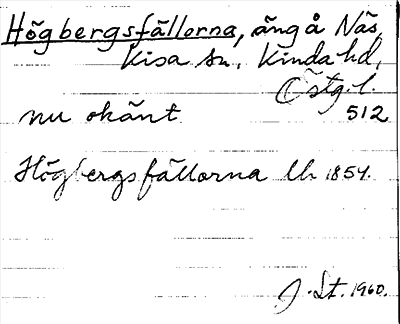 Högbergsfällorna, äng å Näs,
Kisa sn, Kinda hd,
Östg. l.
nu okänt 512
Högbergsfällorna Lh 1854.
J. St. 1960.